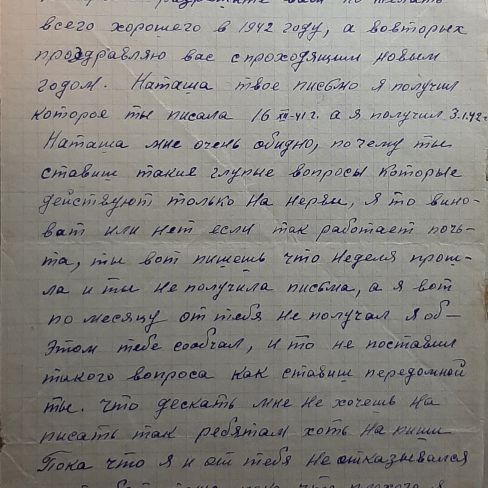 разрешите вам пожелать
всего хорошего в 1942 году, а вовторых
проздравляю вас с проходящим новым
годом. Наташа твое письмо я получил
которое ты писала 16 XII-41 г. а я получил 3.1.42 г
Наташа мне очень обидно, почему ты
ставиш такие глупые вопросы которые
действуют только на нервы, я то вино-
ват или нет если так работает поч-
та, ты вот пишешь что неделя прош-
ла и ты не получила письма, а я вот
по месяцу от тебя не получал я об-
этом тебе сообчал, и то не поставил
такого вопроса как ставиш передомной
ты. что дескать мне не хочешь на
писать так ребятам хоть на пиши
Пока что я и от тебя не отказывался